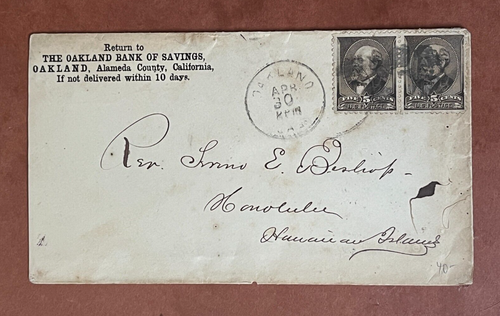 Return to
THE OAKLAND BANK OF SAVINGS,
OAKLAND, Alameda County, California,
If not delivered within 10 days.
OAKLAND
APR
30
FIVE 5 CENTS
U.S. POSTAGE
FIVE 5 CENTS
U.S. POSTAGE
Rev. E. Bishop
Honolulu
Hawaiian Islands
40-